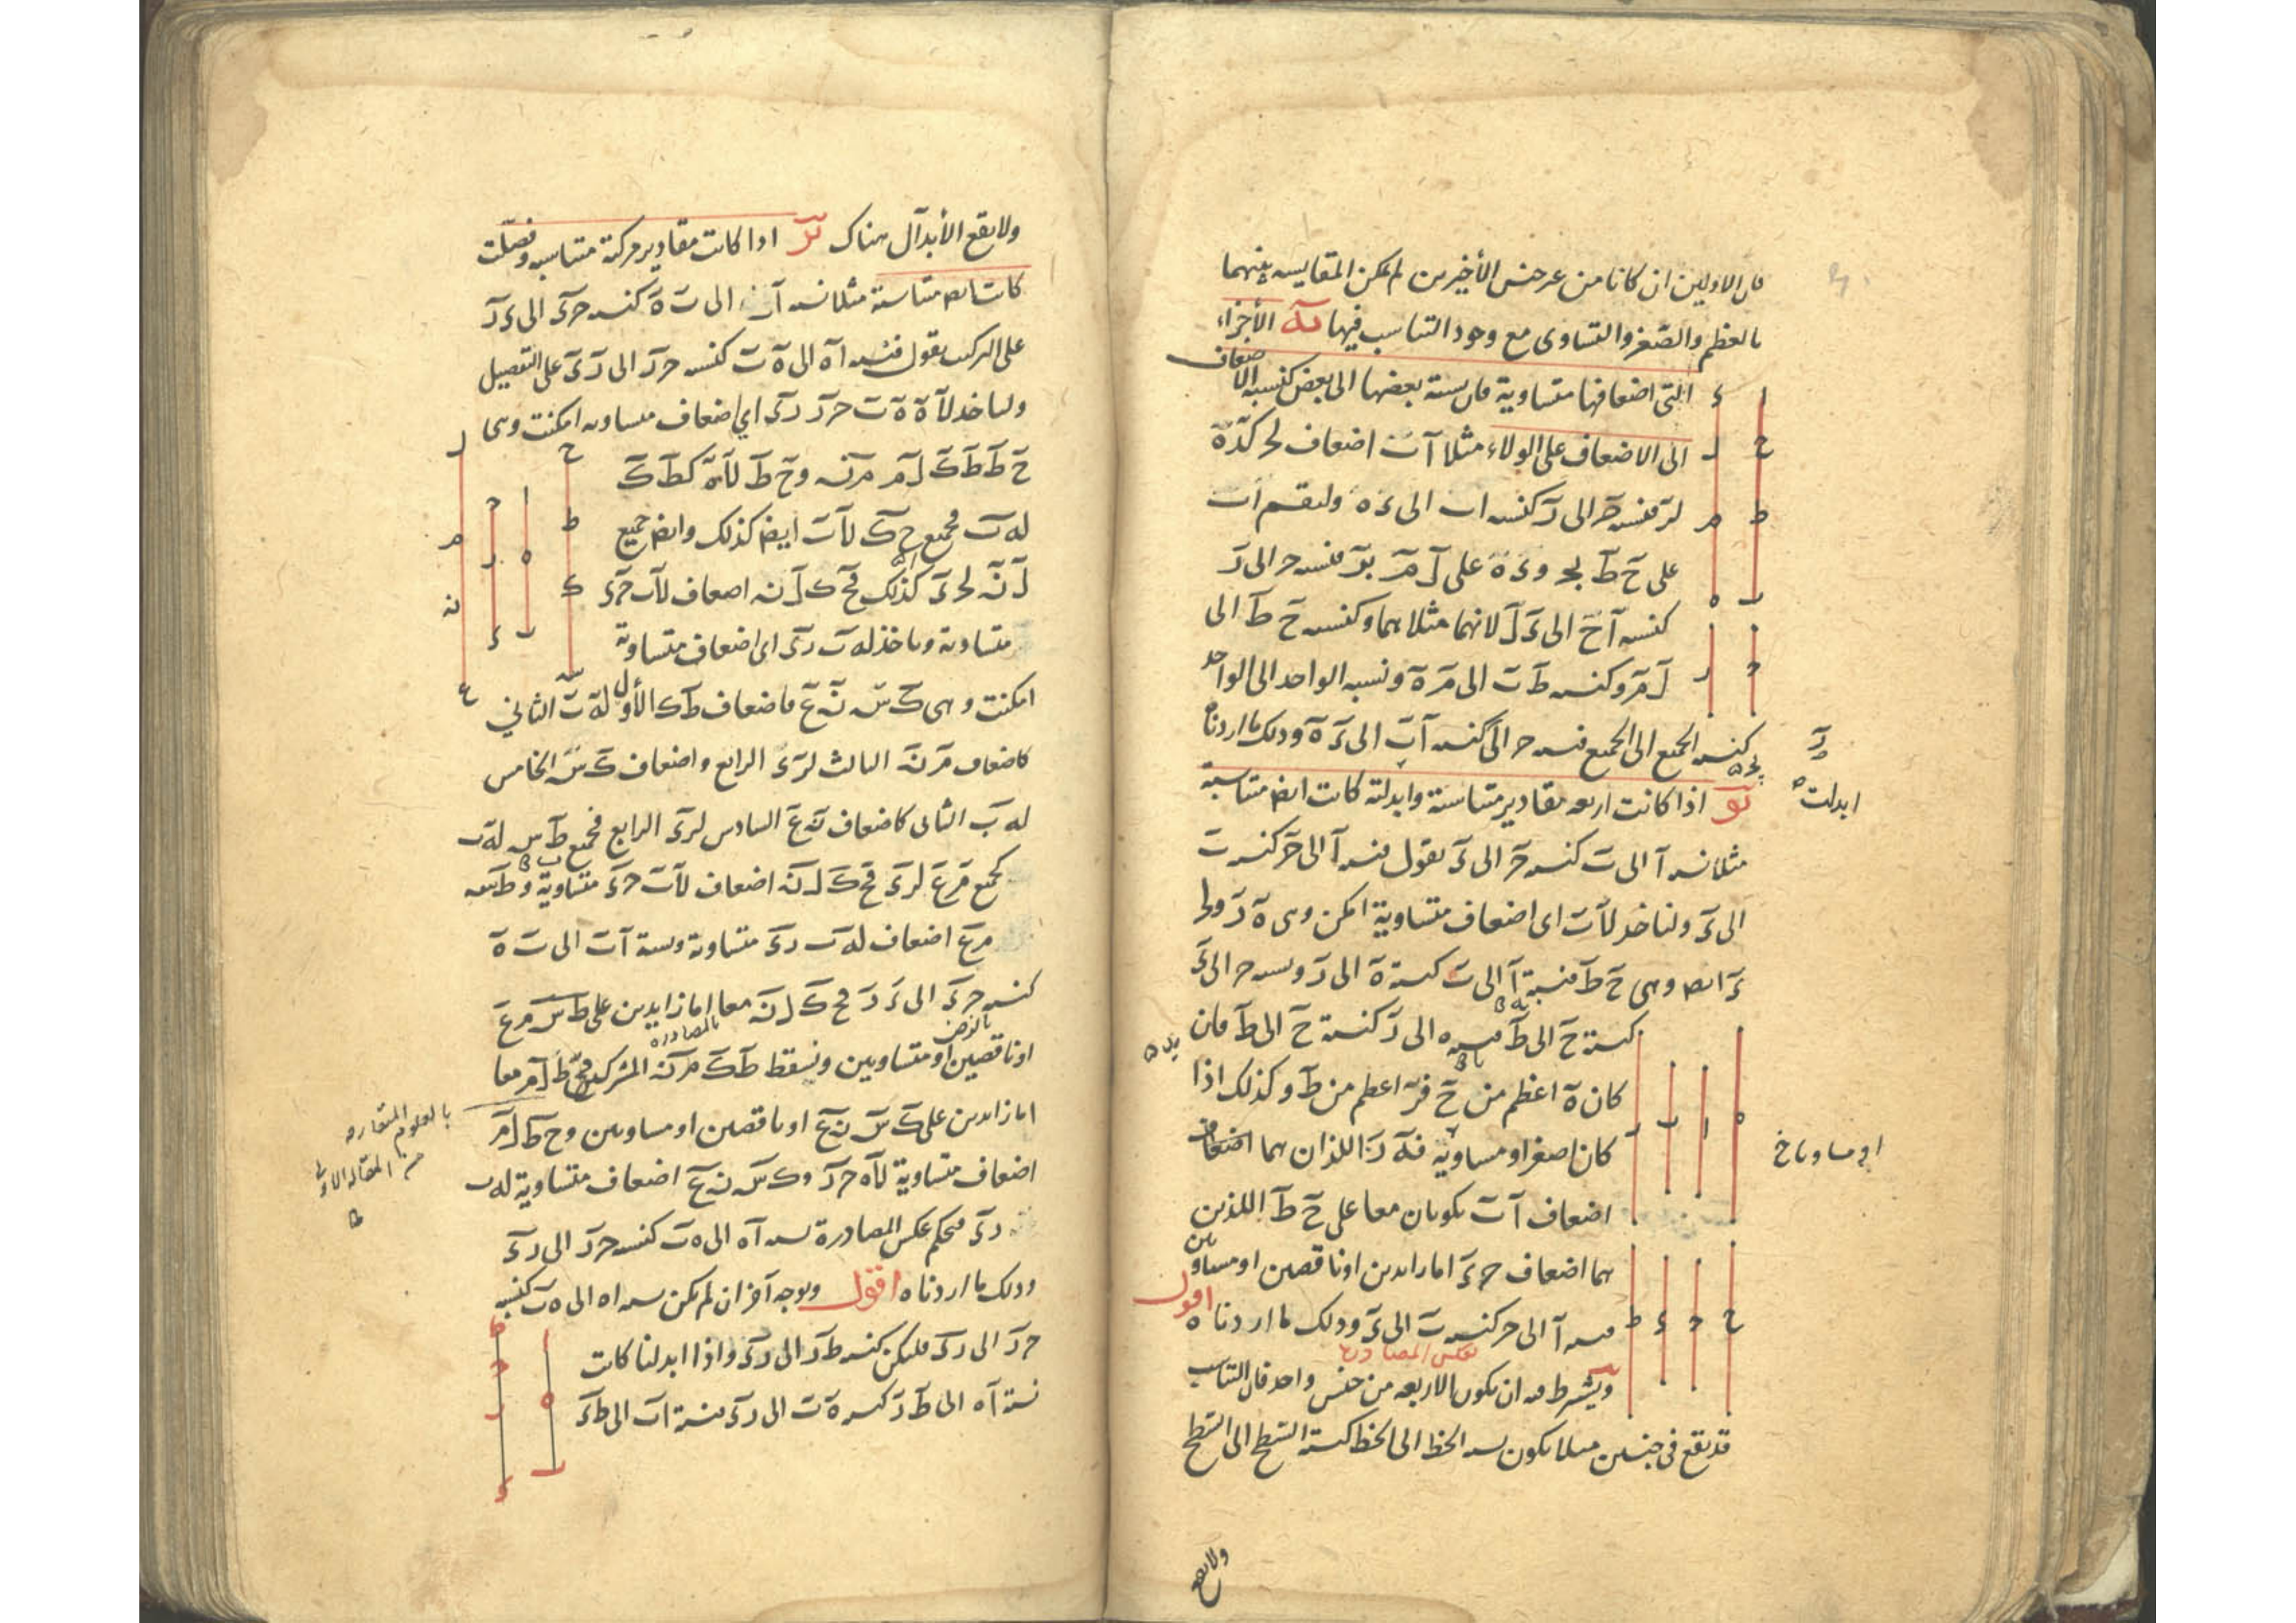 فان الاولين ان كانا من غير جنس الأخيرين لم يمكن المقايسه بينهما
بالعظم والصغر والتساوى مع وجود التناسب فيها يه الأجزاء
التى اضعافها متساوية فان نسبة بعضها الى بعض كنسبة الاضعاف
الى الاضعاف على الولاء مثلا اب اضعاف لحـ كـ ده
لر فنسبه حـ الى ر كنسبه اب الى ده ولنقسم اب
على ح ط بحـ و ده على ل م بر فنسبه حـ الى ر
كنسبه اح الى دل لانهما مثلاهما وكنسبه ح ط الى
ل م وكنسبه ط ب الى م ه ونسبه الواحد الى الواحد
كنسبه الجميع الى الجميع فنسبه حـ الى ر كنسبه اب الى ده وذلك ما اردناه
يو اذا كانت اربعه مقادير متناسبة وابدلت كانت ايضا متناسبة
ابدلت
مثلا نسبه ا الى ب كنسبه حـ الى د نقول فنسبه ا الى حـ كنسبه ب
الى د ولناخذ لا ب اى اضعاف متساوية امكن وهى ه ر ولحـ
د ايضا وهى ح ط فنسبة ا الى ب كنسبة ه الى ر ونسبه حـ الى د
كنسبة ح الى ط فنسبه ه الى ر كنسبة ح الى ط فان
كان ه اعظم من ح فر اعظم من ط وكذلك اذا
كان اصغر او مساويا فه ر اللذان هما اضعاف
او مساويا خ
اضعاف ا ب يكونان معا على ح ط اللذين
هما اضعاف حـ د اما زايدين او ناقصين او مساويين
فنسبه ا الى حـ كنسبه ب الى د وذلك ما اردناه اقول
بعكس المصادرة
ويشترط فيه ان يكون الاربعه من جنس واحد فان التناسب
قد يقع فى جنسين مثلا يكون نسبه الخط الى الخط كنسبة السطح الى السطح
ولا يقع
ولا يقع الأبدال هناك يز اذا كانت مقادير مركبة متناسبه وفصلت
كانت ايضا متناسبة مثلا نسبه اب الى ب ه كنسبه حـ د الى د ر
على التركيب نقول فنسبه اه الى ه ب كنسبه حـ ر الى ر د على التفصيل
ولناخذ لا ه ه ب حـ ر ر د اي اضعاف متساويه امكنت وهى
ح ط ط ك ل م م ن و ح ط لا ه كـ ط ك
له ب فجميع ح ك لا ب ايضا كذلك وايضا جميع
ل ن لحـ د كذلك فح ك ل ن اضعاف لا ب حـ د
متساوية وناخذ له ب ر د اى اضعاف متساوية
امكنت وهى ك س ن ع فاضعاف ط ك الأول له ب الثاني
كاضعاف م ن الثالث لر د الرابع واضعاف ك س الخامس
له ب الثانى كاضعاف ن ع السادس لر د الرابع فجميع ط س له ب
كجميع م ع لر د فح ك ل ن اضعاف لا ب حـ د متساوية و ط س
م ع اضعاف له ب ر د متساوية ونسبة اب الى ب ه
كنسبه حـ د الى د ر فح ك ل ن معا اما زايدين على ط س م ع
بالمصادرة
او ناقصين او متساويين ونسقط ط ك م ن المشتركين فح ط ل م معا
اما زايدين على ك س ن ع او ناقصين او مساويين و ح ط ل م
بالعلوم المتعارفه
من المقاله الاولى
اضعاف متساوية لا ه حـ ر و ك س ن ع اضعاف متساوية له ب
ر د فبحكم عكس المصادرة نسبه اه الى ه ب كنسبه حـ ر الى ر د
وذلك ما اردناه اقول وبوجه آخر ان لم يكن نسبه اه الى ه ب كنسبه
حـ ر الى ر د فليكن كنسبه ط ر الى ر د واذا ابدلنا كانت
نسبة اه الى ط ر كنسبه ه ب الى ر د فنسبة اب الى ط د